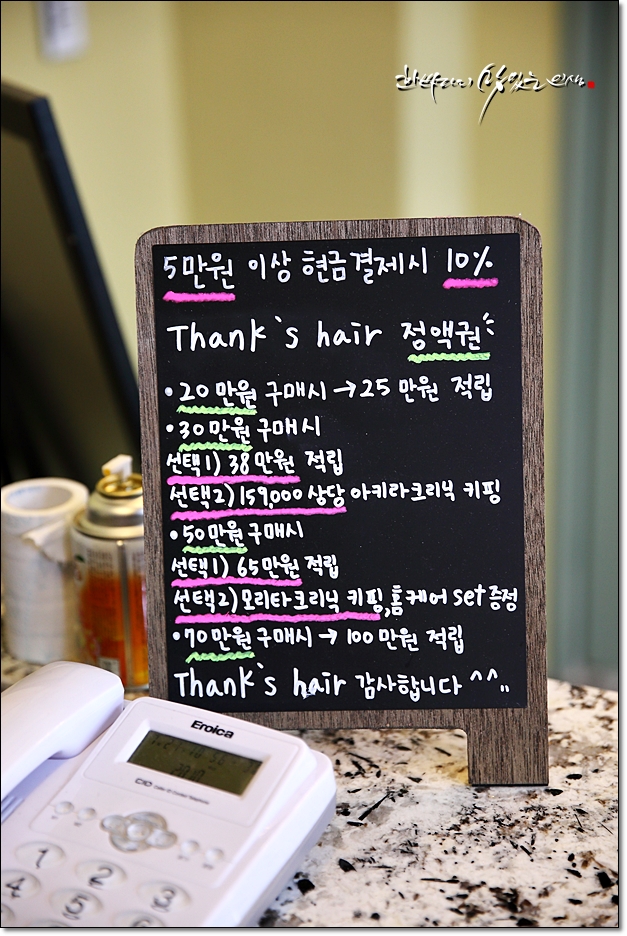 5만원 이상 현금결제시 10%
Thank`s hair 정액권
• 20만원 구매시 → 25만원 적립
• 30만원 구매시
선택1) 38만원 적립
선택2) 159,000상당 아키라크리닉 키핑
• 50만원구매시
선택1) 65만원 적립
선택2) 모리타크리닉 키핑, 홈케어 set증정
• 70만원구매시 → 100만원 적립
Thank`s hair 감사합니다 ^^..
Eroica
CID
1 2 3
4 5 6